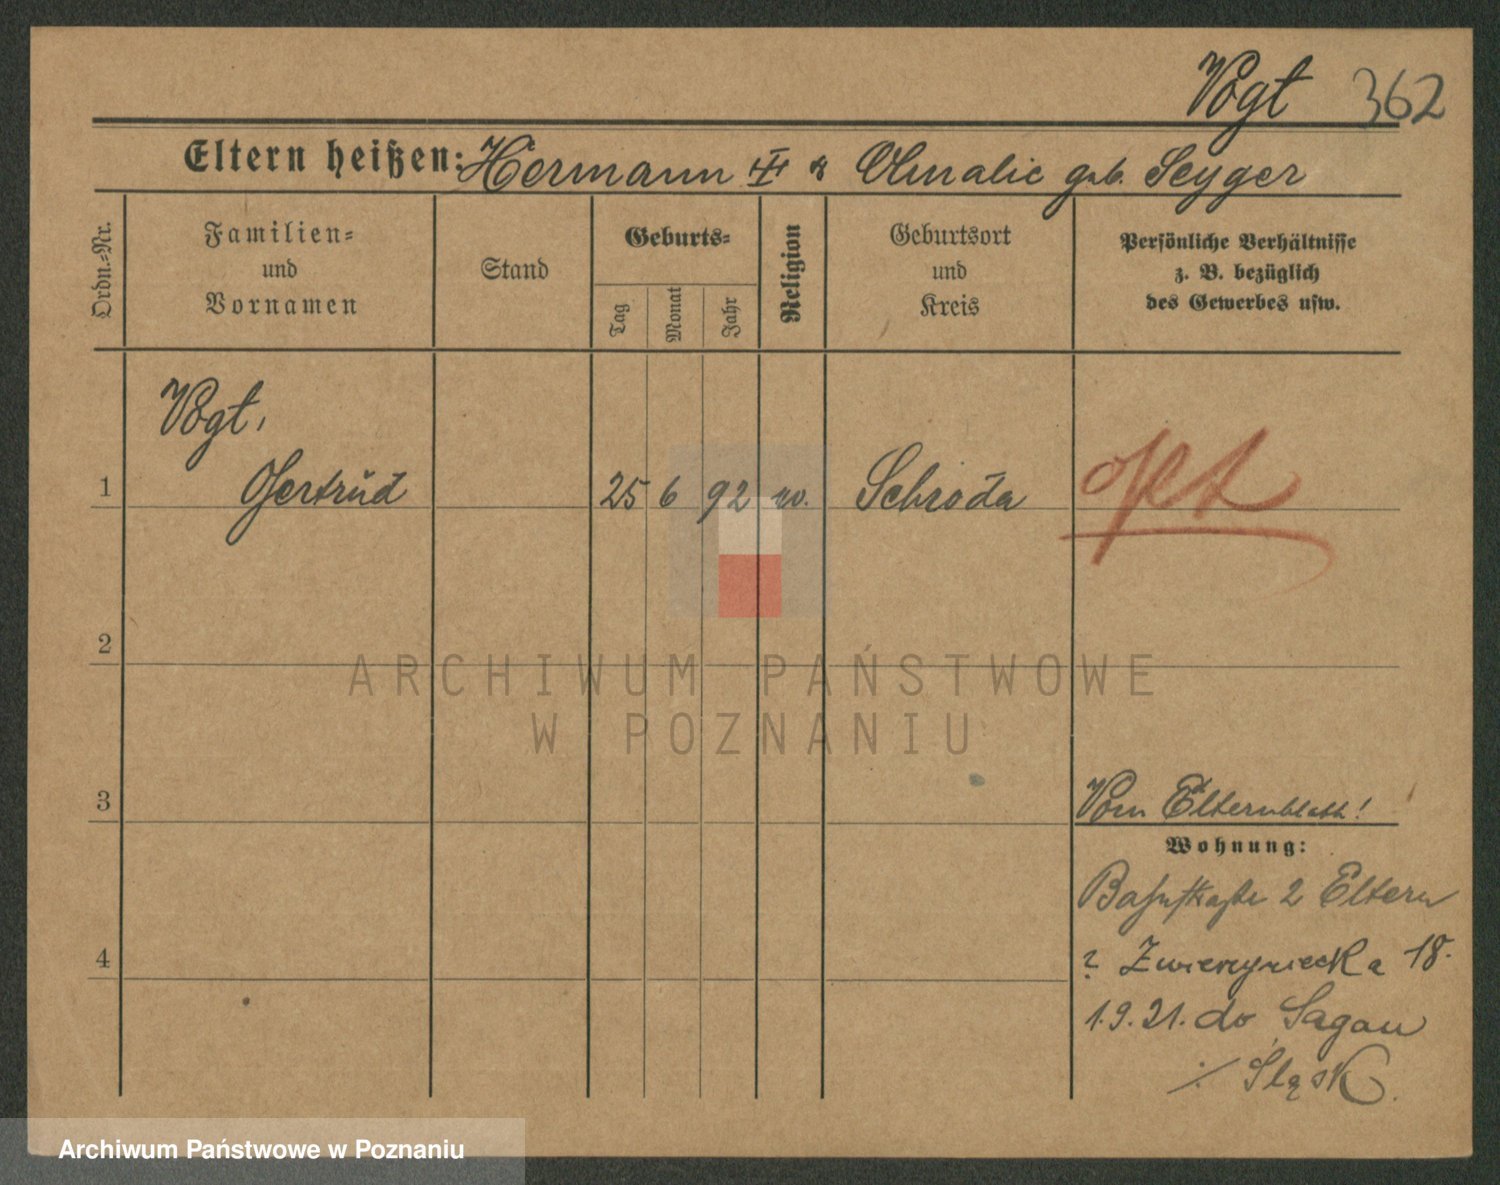 Vogt 362
Eltern heißen: Hermann III & Amalie geb. Seyger
Ordn.-Nr.
Familien-
und
Vornamen
Stand
Geburts-
Tag
Monat
Jahr
Religion
Geburtsort
und
Kreis
Persönliche Verhältnisse
z. B. bezüglich
des Gewerbes usw.
Vogt,
1 Gertrud 25 6 92 Schroda opt
2
ARCHIWUM PAŃSTWOWE
W POZNANIU
3 Vom Elternblatt!
Wohnung:
Bahnstraße 2 Eltern
4 Zwierzyniecka 18.
1.9.21. do Sagan
Śląsk.
Archiwum Państwowe w Poznaniu